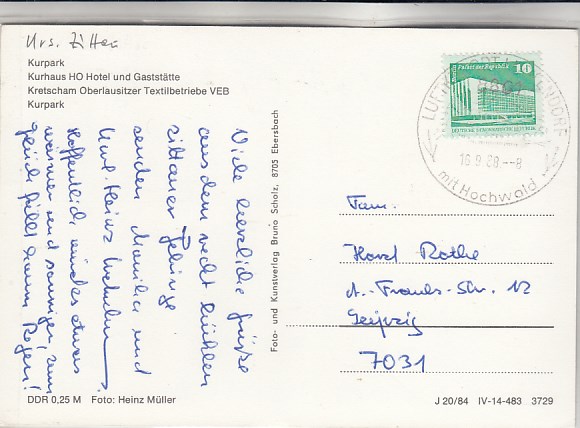 Krs. Zittau
Kurpark
Kurhaus HO Hotel und Gaststätte
Kretscham Oberlausitzer Textilbetriebe VEB
Kurpark
Palast der Republik
10
DEUTSCHE DEMOKRATISCHE REPUBLIK
LUFTKURORT
DORF
16.9.88.--8
mit Hochwald
Viele herzliche Grüße
aus dem recht kühlen
Zittauer Gebirge
senden Monika und
Karl-Heinz
Hoffentlich wird es etwas
wärmer und sonniger, zum
Glück fällt kaum Regen!
Foto- und Kunstverlag Bruno Scholz, 8705 Ebersbach
Fam.
Horst Rothe
A.- -Str. 12
Leipzig
7031
DDR 0,25 M Foto: Heinz Müller
J 20/84 IV-14-483 3729